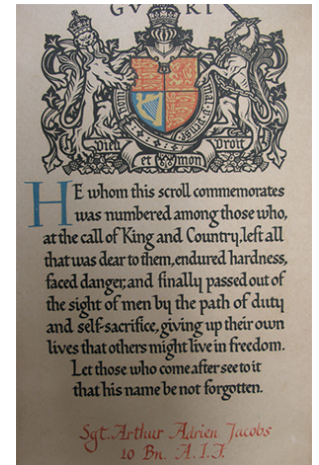 GVRI
Honi soit
Dieu et mon Droit
HE whom this scroll commemorates
was numbered among those who,
at the call of King and Country, left all
that was dear to them, endured hardness,
faced danger, and finally passed out of
the sight of men by the path of duty
and self-sacrifice, giving up their own
lives that others might live in freedom.
Let those who come after see to it
that his name be not forgotten.
Sgt. Arthur Adrien Jacobs
10 Bn. A.I.F.